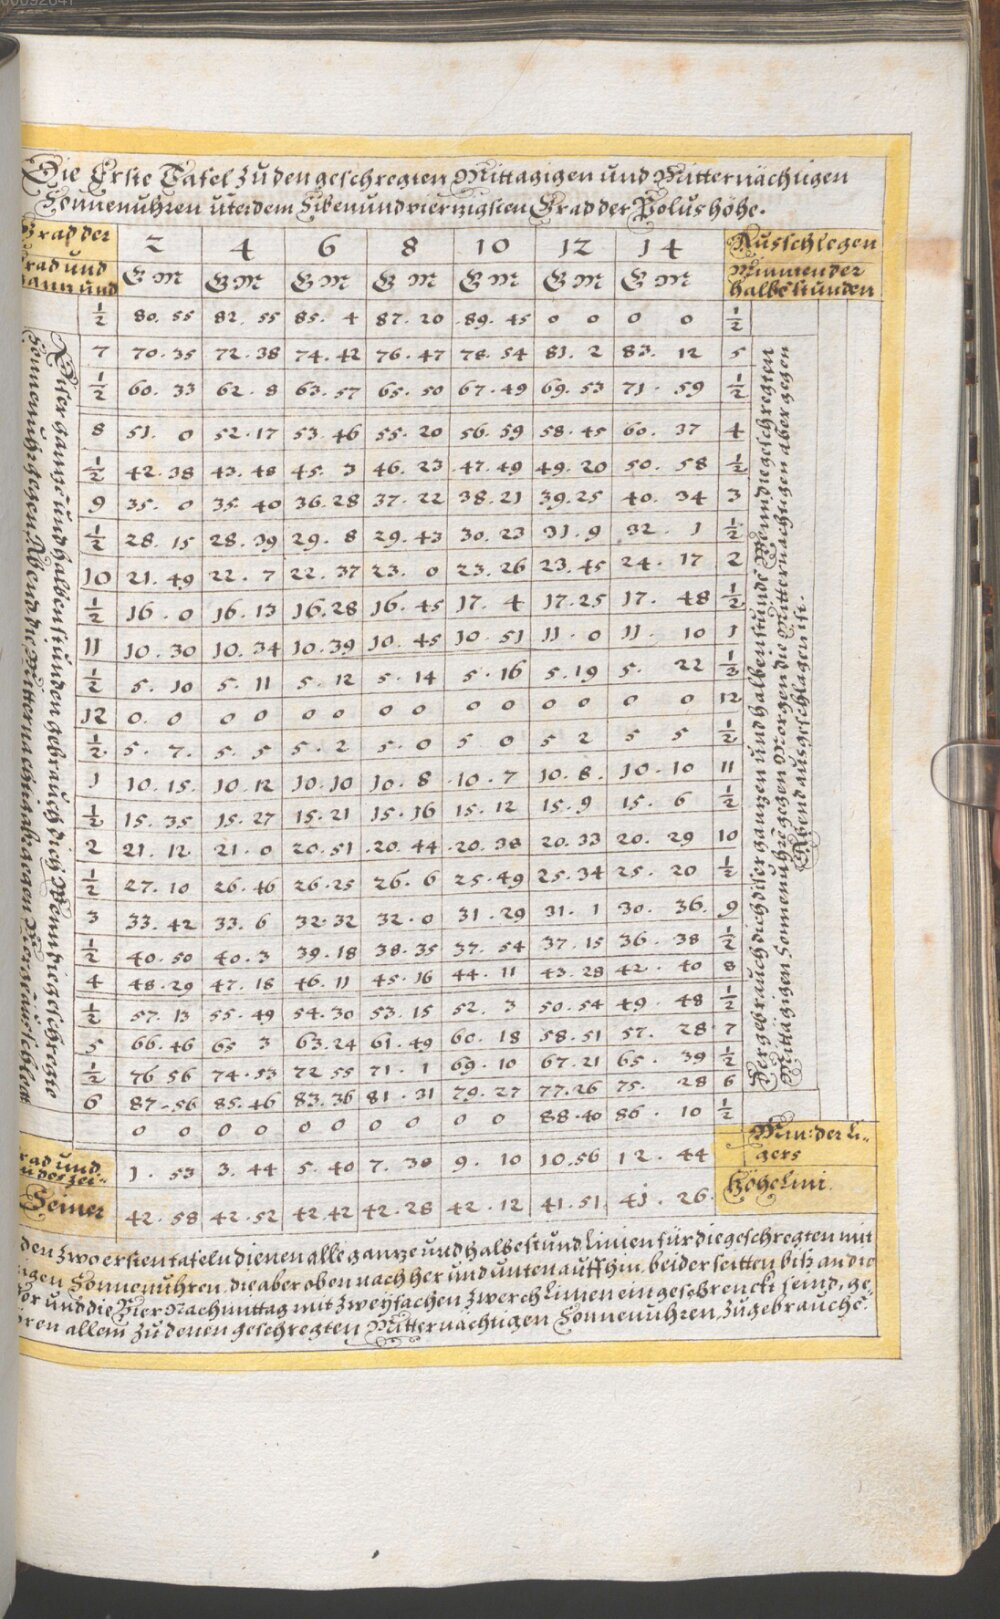 Die Erste Tafel zu den geschregten Mittagigen und Mitternächtigen
Sonnenuhren unter dem Siben und vierzigsten Grad der Polus höhe.
Grad der 2 4 6 8 10 12 14 Ausschlegen
Grad und G M G M G M G M G M G M G M Minuten der
und halbe stunden
1/2 80. 55 82. 55 85. 4 87. 20 89. 45 0 0 0 0 1/2
7 70. 35 72. 38 74. 42 76. 47 78. 54 81. 2 83. 12 5
1/2 60. 33 62. 8 63. 57 65. 50 67. 49 69. 53 71. 59 1/2
8 51. 0 52. 17 53. 46 55. 20 56. 59 58. 45 60. 37 4
1/2 42. 38 43. 48 45. 3 46. 23 47. 49 49. 20 50. 58 1/2
9 35. 0 35. 40 36. 28 37. 22 38. 21 39. 25 40. 34 3
1/2 28. 15 28. 39 29. 8 29. 43 30. 23 31. 9 32. 1 1/2
10 21. 49 22. 7 22. 37 23. 0 23. 26 23. 45 24. 17 2
1/2 16. 0 16. 13 16. 28 16. 45 17. 4 17. 25 17. 48 1/2
11 10. 30 10. 34 10. 39 10. 45 10. 51 11. 0 11. 10 1
1/2 5. 10 5. 11 5. 12 5. 14 5. 16 5. 19 5. 22 1/3
12 0. 0 0 0 0 0 0 0 0 0 0 0 0 0 12
1/2 5. 7. 5. 5 5. 2 5. 0 5 0 5 2 5 5 1/2
1 10. 15. 10. 12 10. 10 10. 8 10. 7 10. 8. 10. 10 11
1/2 15. 35 15. 27 15. 21 15. 16 15. 12 15. 9 15. 6 1/2
2 21. 12 21. 0 20. 51 20. 44 20. 38 20. 33 20. 29 10
1/2 27. 10 26. 46 26. 25 26. 6 25. 49 25. 34 25. 20 1/2
3 33. 42 33. 6 32. 32 32. 0 31. 29 31. 1 30. 36. 9
1/2 40. 50 40. 3 39. 18 38. 35 37. 54 37. 15 36. 38 1/2
4 48. 29 47. 18 46. 11 45. 16 44. 11 43. 28 42. 40 8
1/2 57. 13 55. 49 54. 30 53. 15 52. 3 50. 54 49. 48 1/2
5 66. 46 65 3 63. 24 61. 49 60. 18 58. 51 57. 28 7
1/2 76 56 74. 53 72 55 71. 1 69. 10 67. 21 65. 39 1/2
6 87. 56 85. 46 83. 36 81. 31 79. 27 77. 26 75. 28 6
0 0 0 0 0 0 0 0 0 0 88. 40 86. 10 1/2
rad und 1. 53 3. 44 5. 40 7. 30 9. 10 10. 56 12. 44 Min: der Zei-
gers
Seiner 42. 58 42. 52 42. 42 42. 28 42. 12 41. 51. 41. 26. Höhe Lini.
Diser ganze und halben stunden gebrauch dich Wenn die geschregte
Sonnenuhr gegen Abend die Mitternachtig
Der gebrauch dich diser ganzen und halben stunde Wenn die geschregten
Mittagigen Sonnenuhre gegen Morgen die Mitternachtigen aber gegen
Abend ausgeschlagen ist.
den zwo ersten tafeln dienen alle ganze und halbe stund Linien für die geschregten mit
agen Sonnenuhren, die aber oben nach her und unten auff hin, beider seitten biß an die
vor und die Vier Nachmittag mit zweyfachen zwerch Linien eingeschrenckt seind, ge-
ören allein zu denen geschregten Mitternachtigen Sonnenuhren, zugebrauche.